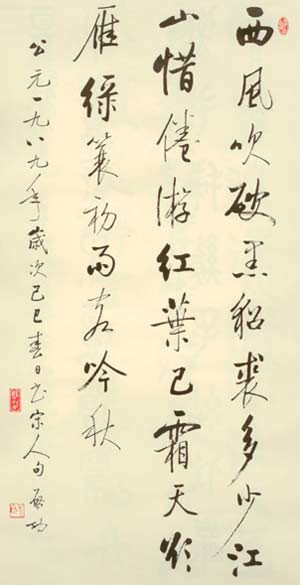 西風吹破黑貂裘多少江
山惜倦游紅葉已霜天欲
雁綠蓑初雨客吟秋
公元一九八九年歲次己巳春日书宋人句 啓功